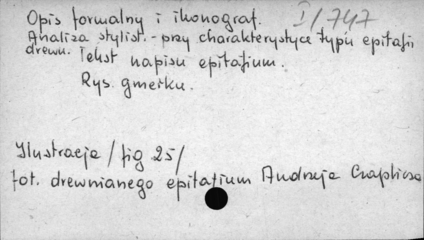 Opis formalny i ikonograf. I/747
Analiza stylist. - przy charakterystyce typu epitafii
drewn. Tekst napisu epitafium.
Rys. gmerku.
Ilustracja /fig 25/
fot. drewnianego epitafium Andrzeja Czaplicza